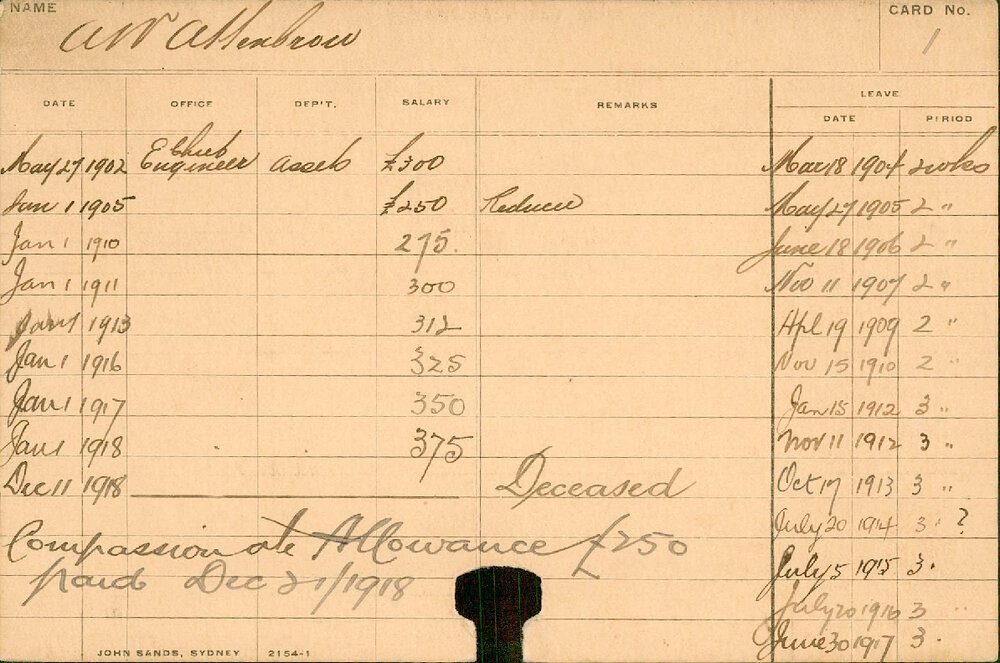 NAME CARD No.
A W Attenbrow 1
DATE OFFICE DEP'T. SALARY REMARKS LEAVE
DATE PERIOD
May 27 1902 Chief Engineer Assets £300 Mar 18 1904 2 wks
Jan 1 1905 £250 Reduced May 27 1905 2 "
Jan 1 1910 275. June 18 1906 2 "
Jan 1 1911 300 Nov 11 1907 2 "
Jan 1 1913 312 Apl 19 1909 2 "
Jan 1 1916 325 Nov 15 1910 2 "
Jan 1 1917 350 Jan 15 1912 3 "
Jan 1 1918 375 Nov 11 1912 3 "
Dec 11 1918 Deceased Oct 17 1913 3 "
July 20 1914 3 ?
Compassionate Allowance £250
July 5 1915 3 "
paid Dec 21/1918
July 20 1916 3 "
June 30 1917 3 "
JOHN SANDS, SYDNEY 2154-1